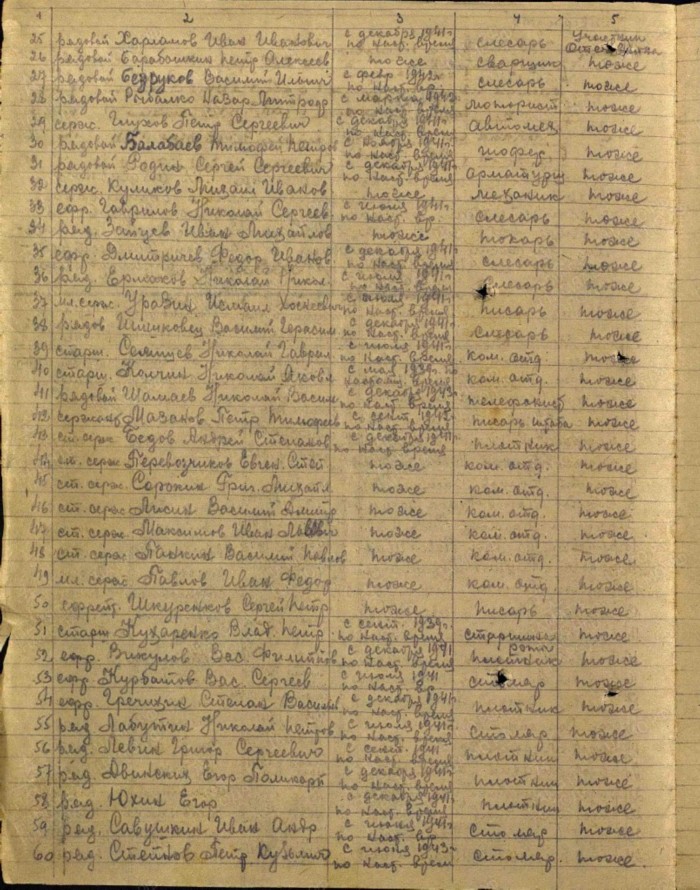 1 2 3 4 5
25 рядовой Харламов Иван Иванович с декабря 1941г. по наст. время слесарь Участник Отеч. войны
26 рядовой Барабошкин Петр Алексеев тоже сварщик тоже
27 рядовой Безруков Василий Ильич с февр 1942г. по наст. вр. слесарь тоже
28 рядовой Рыбалко Назар с марта 1943г. по наст. время моторист тоже
29 серж. Глухов Петр Сергеевич с декабря 1941г. по наст. время автомех тоже
30 рядовой Балабаев Тимофей Петров с ноября 1941г. по наст. время шофер. тоже
31 рядовой Родин Сергей Сергеевич с декабря 1941г. по наст. время тоже
32 серж. Куликов Михаил Иванов тоже механик тоже
33 ефр. Гаврилов Николай Сергеев с июля 1941г. по наст. вр. слесарь тоже
34 ряд. Зайцев Иван Михайлов тоже токарь тоже
35 ефр. Дмитричев Федор Иванов с декабря 1941г. по наст. время слесарь тоже
36 ряд. Ермаков Николай Никол. с июля 1941г. по наст. время слесарь тоже
37 мл. серж. Уразин Исмаил с июля 1941г. по наст. время писарь тоже
38 рядов Шишковец Василий Герасим с декабря 1941г. по наст. время слесарь тоже
39 старш. Селянцев Николай Гаврил с июля 1941г. по наст. время ком. отд. тоже
40 старш. Колчин Николай Яковл с мая 1939г. по настоящ. время ком. отд. тоже
41 рядовой Шамаев Николай Васил с декабря 1943г. по наст. время телефонист тоже
42 сержант Мазанов Петр Тимофеев с сент. 1942г. по наст. время писарь штаба тоже
43 ст. серж. Бедов Андрей Степанов с декабря 1941г. по наст. время плотник тоже
44 мл. серж. Перевозчиков Евген. Степ тоже ком. отд. тоже
45 ст. серж. Сорокин Григ. Михайл тоже ком. отд. тоже
46 ст. серж. Лисин Василий Дмитр тоже ком. отд. тоже
47 ст. серж. Максимов Иван тоже ком. отд. тоже
48 ст. серж. Панкин Василий Павлов тоже ком. отд. тоже
49 мл. серж. Павлов Иван Федор тоже ком. отд. тоже
50 ефрейт. Шкуренков Сергей Петр тоже писарь тоже
51 старш Кухаренко Влад. Петр с сент. 1939г. по наст. время старшина роты тоже
52 ефр. Викулов Вас. Филиппов с декабря 1941 по наст. время плотник тоже
53 ефр Курбатов Вас Сергеев с июля 1941 по наст. вр. столяр тоже
54 ефр. Гречихин Степан Василь с декабря 1941г. по наст. время плотник тоже
55 ряд Лабутин Николай Петров с июля 1941г. по наст. время столяр тоже
56 ряд. Левин Григор Сергеевич с сент. 1941 по наст. время плотник тоже
57 ряд Двинских Егор Поликарп с декабря 1941г. по наст. время плотник тоже
58 ряд. Юхин Егор с декабря 1941г. по наст. время плотник тоже
59 ряд. Савушкин Иван Андр с июня 1941г. по наст. вр. столяр тоже
60 ряд. Степнов Петр Кузьмич с июля 1943г. по наст. время столяр. тоже.